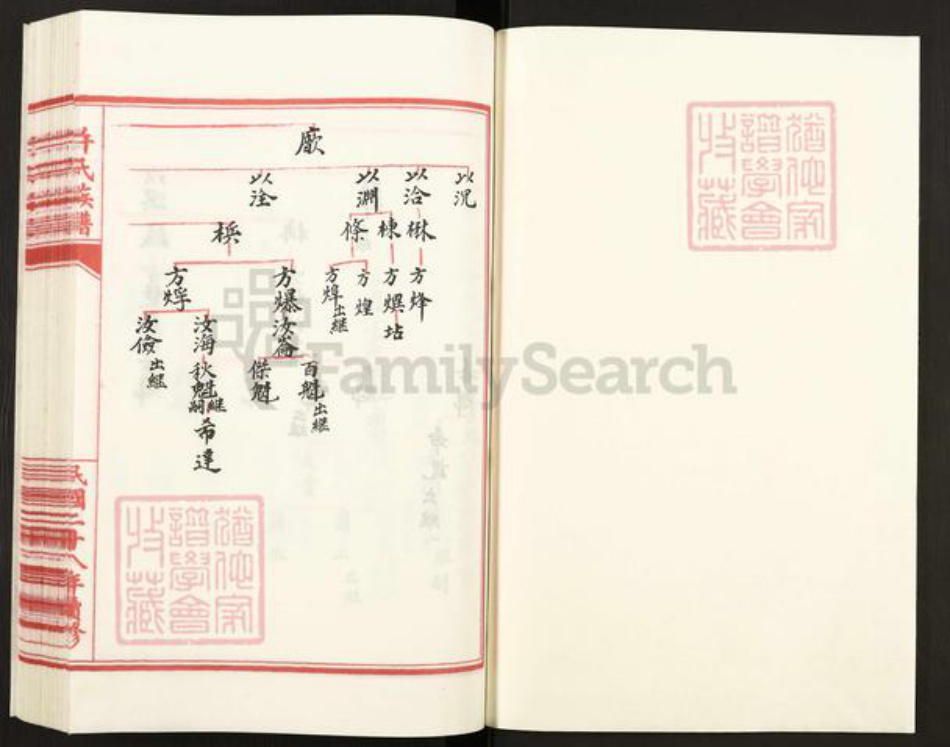 許氏族譜
民國二十八年續修
廒
以沉
以洽
以淵
以淦
楙
棟
條
方烽
方熉
坫
方煌
方焯出继
方爆
汝崙
百魁出继
傑魁
方烰
汝海
秋魁继嗣
希達
汝儉出继
猶他家
譜學會
收藏
猶他家
譜學會
收藏
FamilySearch